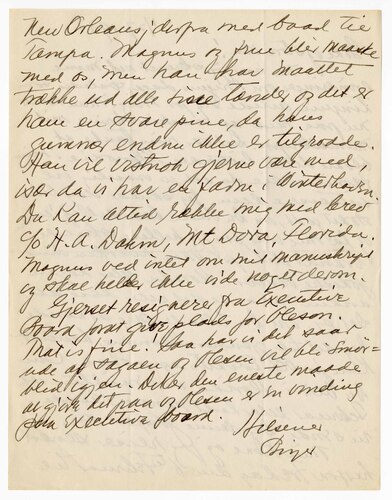 New Orleans, derfra med baad til
Tampa. Magnus og frue blir maaske
med os, men han har maattet
trække ud alle sisse tænder og det er
ham en svare pine, da hans
gummer endnu ikke er tilgrode.
Han vil vistnok gjerne være med,
især da vi har en farm i Winterhaven.
Du kan altid række mig med brev
c/o H. A. Dahm, Mt Dora, Florida.
Magnus ved intet om mit manuskript
og skal heller ikke vide noget derom.
Gjerset resignerer fra Executive
Board forat give plads for Oleson.
That is fine. Saa har vi det saar
ude at Fagaen og Olesen vil bli
igjen. Det er den eneste maade
at gjøre det paa og Olesen er en vinding
for Executive Board.
Hilsener
Birger